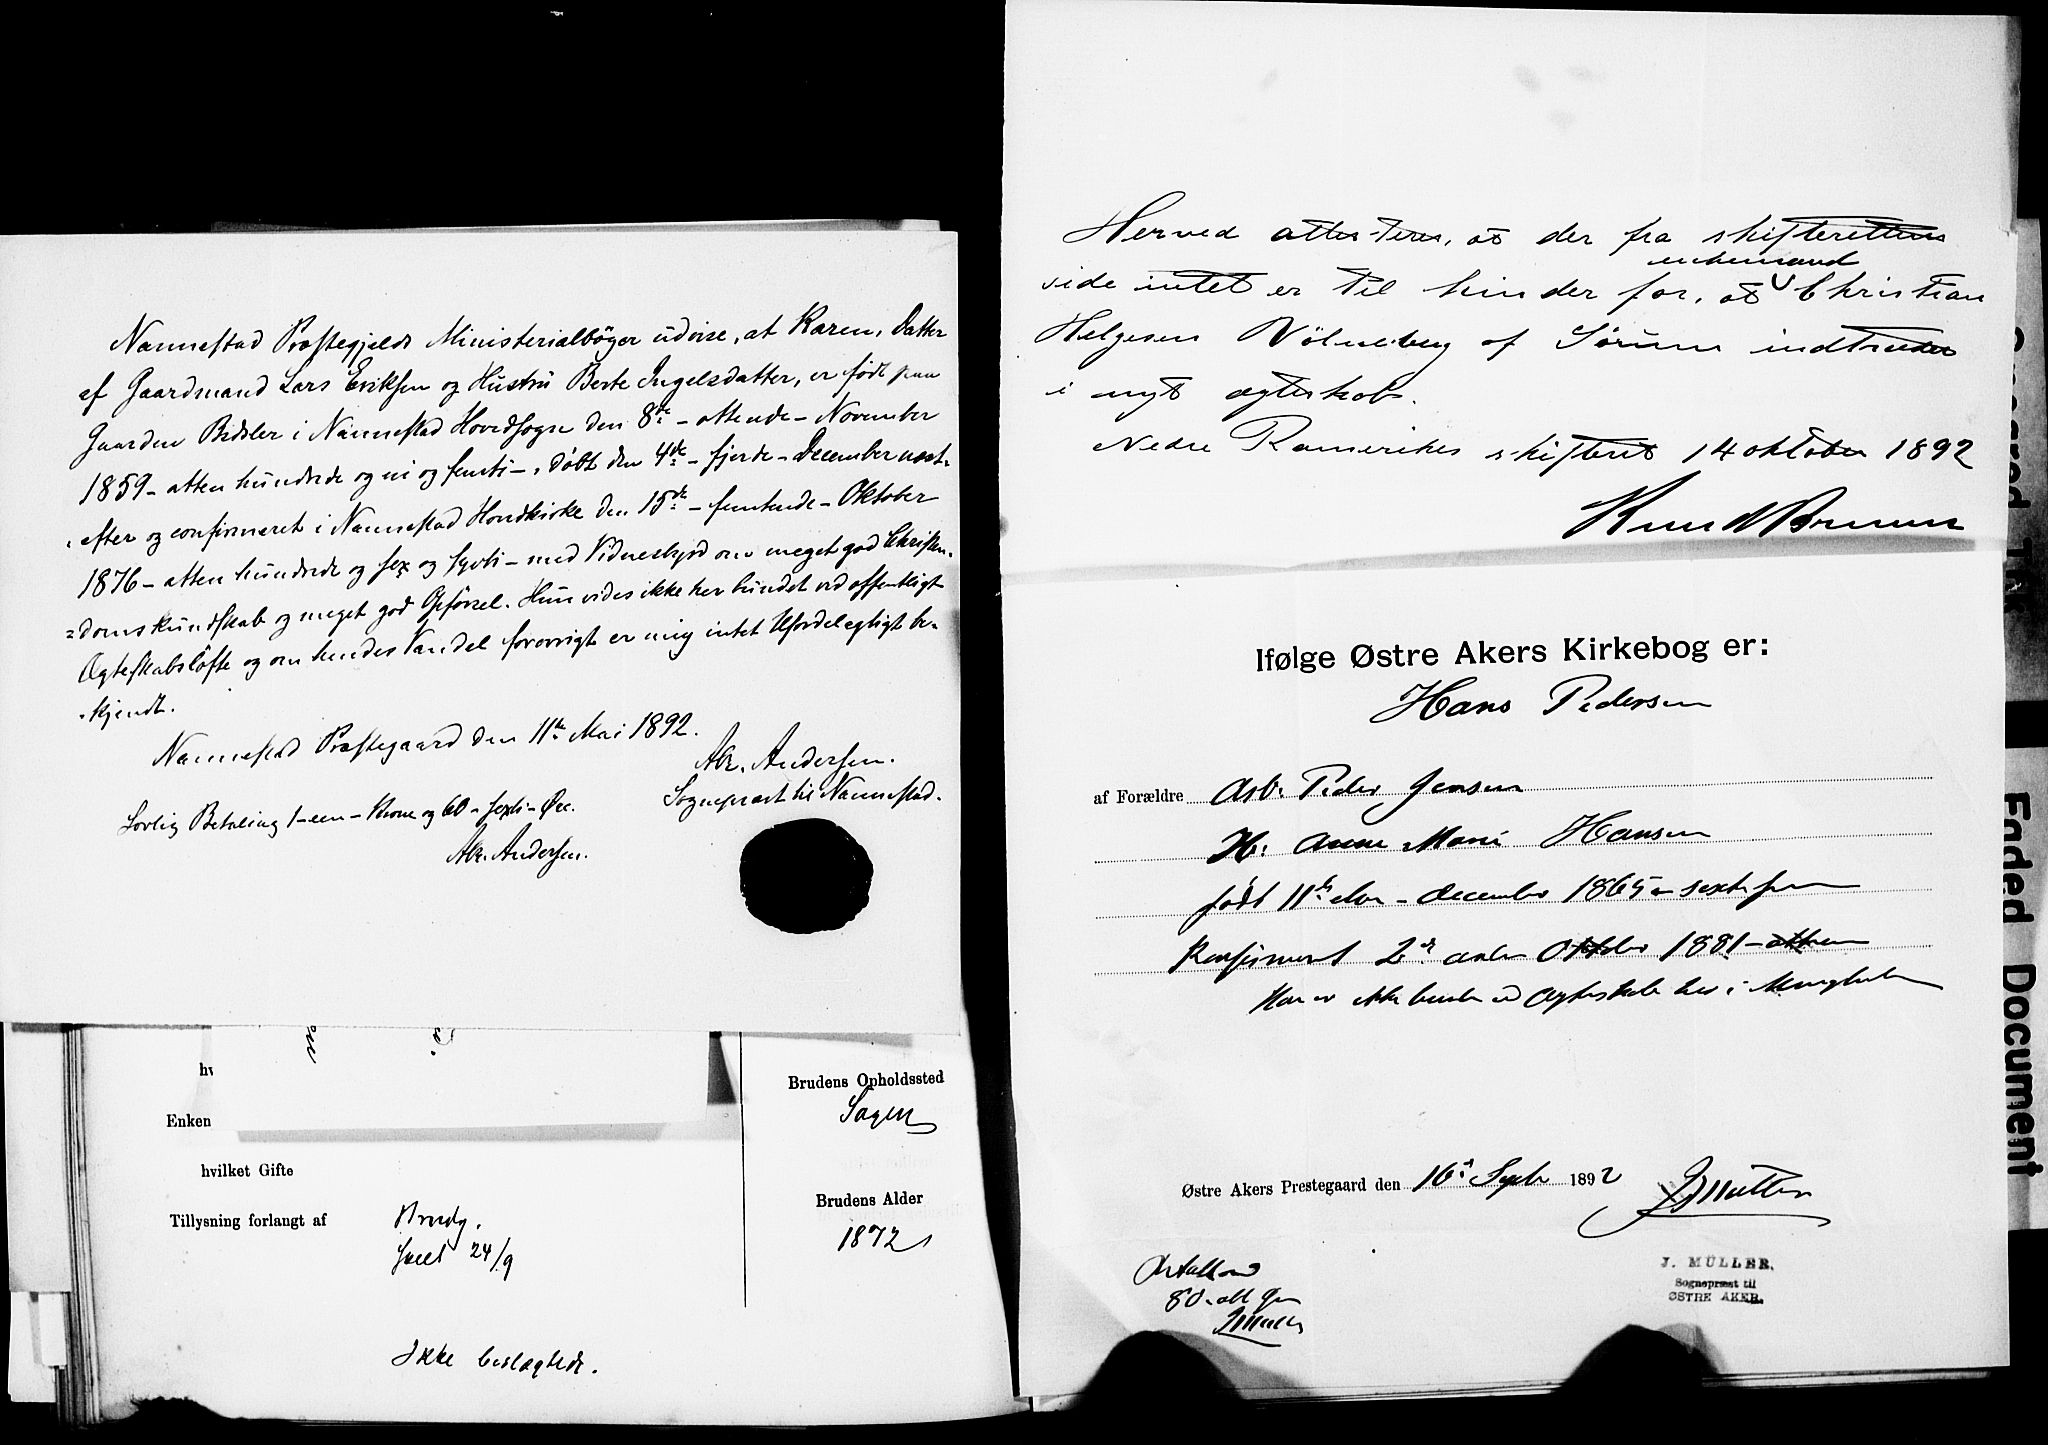 Nannestad Præstegjelds Ministerialbøger udvise, at Karen, Datter
af Gaardmand Lars Eriksen og Hustru Berte Ingelsdatter, er født paa
Gaarden i Nannestad Hovedsogn den 8de - ottende - November
1859 - atten hundrede og ni og femti -, døbt den 4de - fjerde - December næst-
efter og confirmeret i Nannestad Hovedkirke den 15de - femtende - Oktober
1876 - atten hundrede og sex og sytti - med Vidnesbyrd om meget god Christen-
=domskundskab og meget god Opførsel. Hun vides ikke her bundet ved offentligt
Ægteskabsløfte og om hendes Vandel forøvrigt er mig intet Ufordelagtigt be-
-kjendt.
Nannestad Præstegaard den 11te Mai 1892.
Alr. Andersen.
Sognepræst til Nannestad.
Lovlig Betaling 1 - een - Krone og 60 - sexti - Øre.
Alr. Andersen.
Enken
hvilket Gifte
Tillysning forlangt af
Brudg.
24/9
Ikke beslægtede.
Brudens Opholdssted
Sagen
Brudens Alder
1872
Herved attesteres, at der fra skifterettens
side intet er til hinder for, at enkemand Christian
Helgesen af Sørum indtræder
i nyt ægteskab.
Nedre Romerikes skifteret 14 oktober 1892
Knud Bruun
Ifølge Østre Akers Kirkebog er:
Hans Pedersen
af Forældre Arb. Peder Jensen
H. Anne Marie Hansen
født 11te - december 1865 - sextifem
Konfirmert 2den anden Oktober 1881 - atten
Han er ikke bunden ved Ægteskab her i Menigheden
Østre Akers Prestegaard den 16de Septb 1892
J Müller
80 - ott Øre
JMüller
J. MÜLLER.
Sognepræst til
ØSTRE AKER.
Faded Document